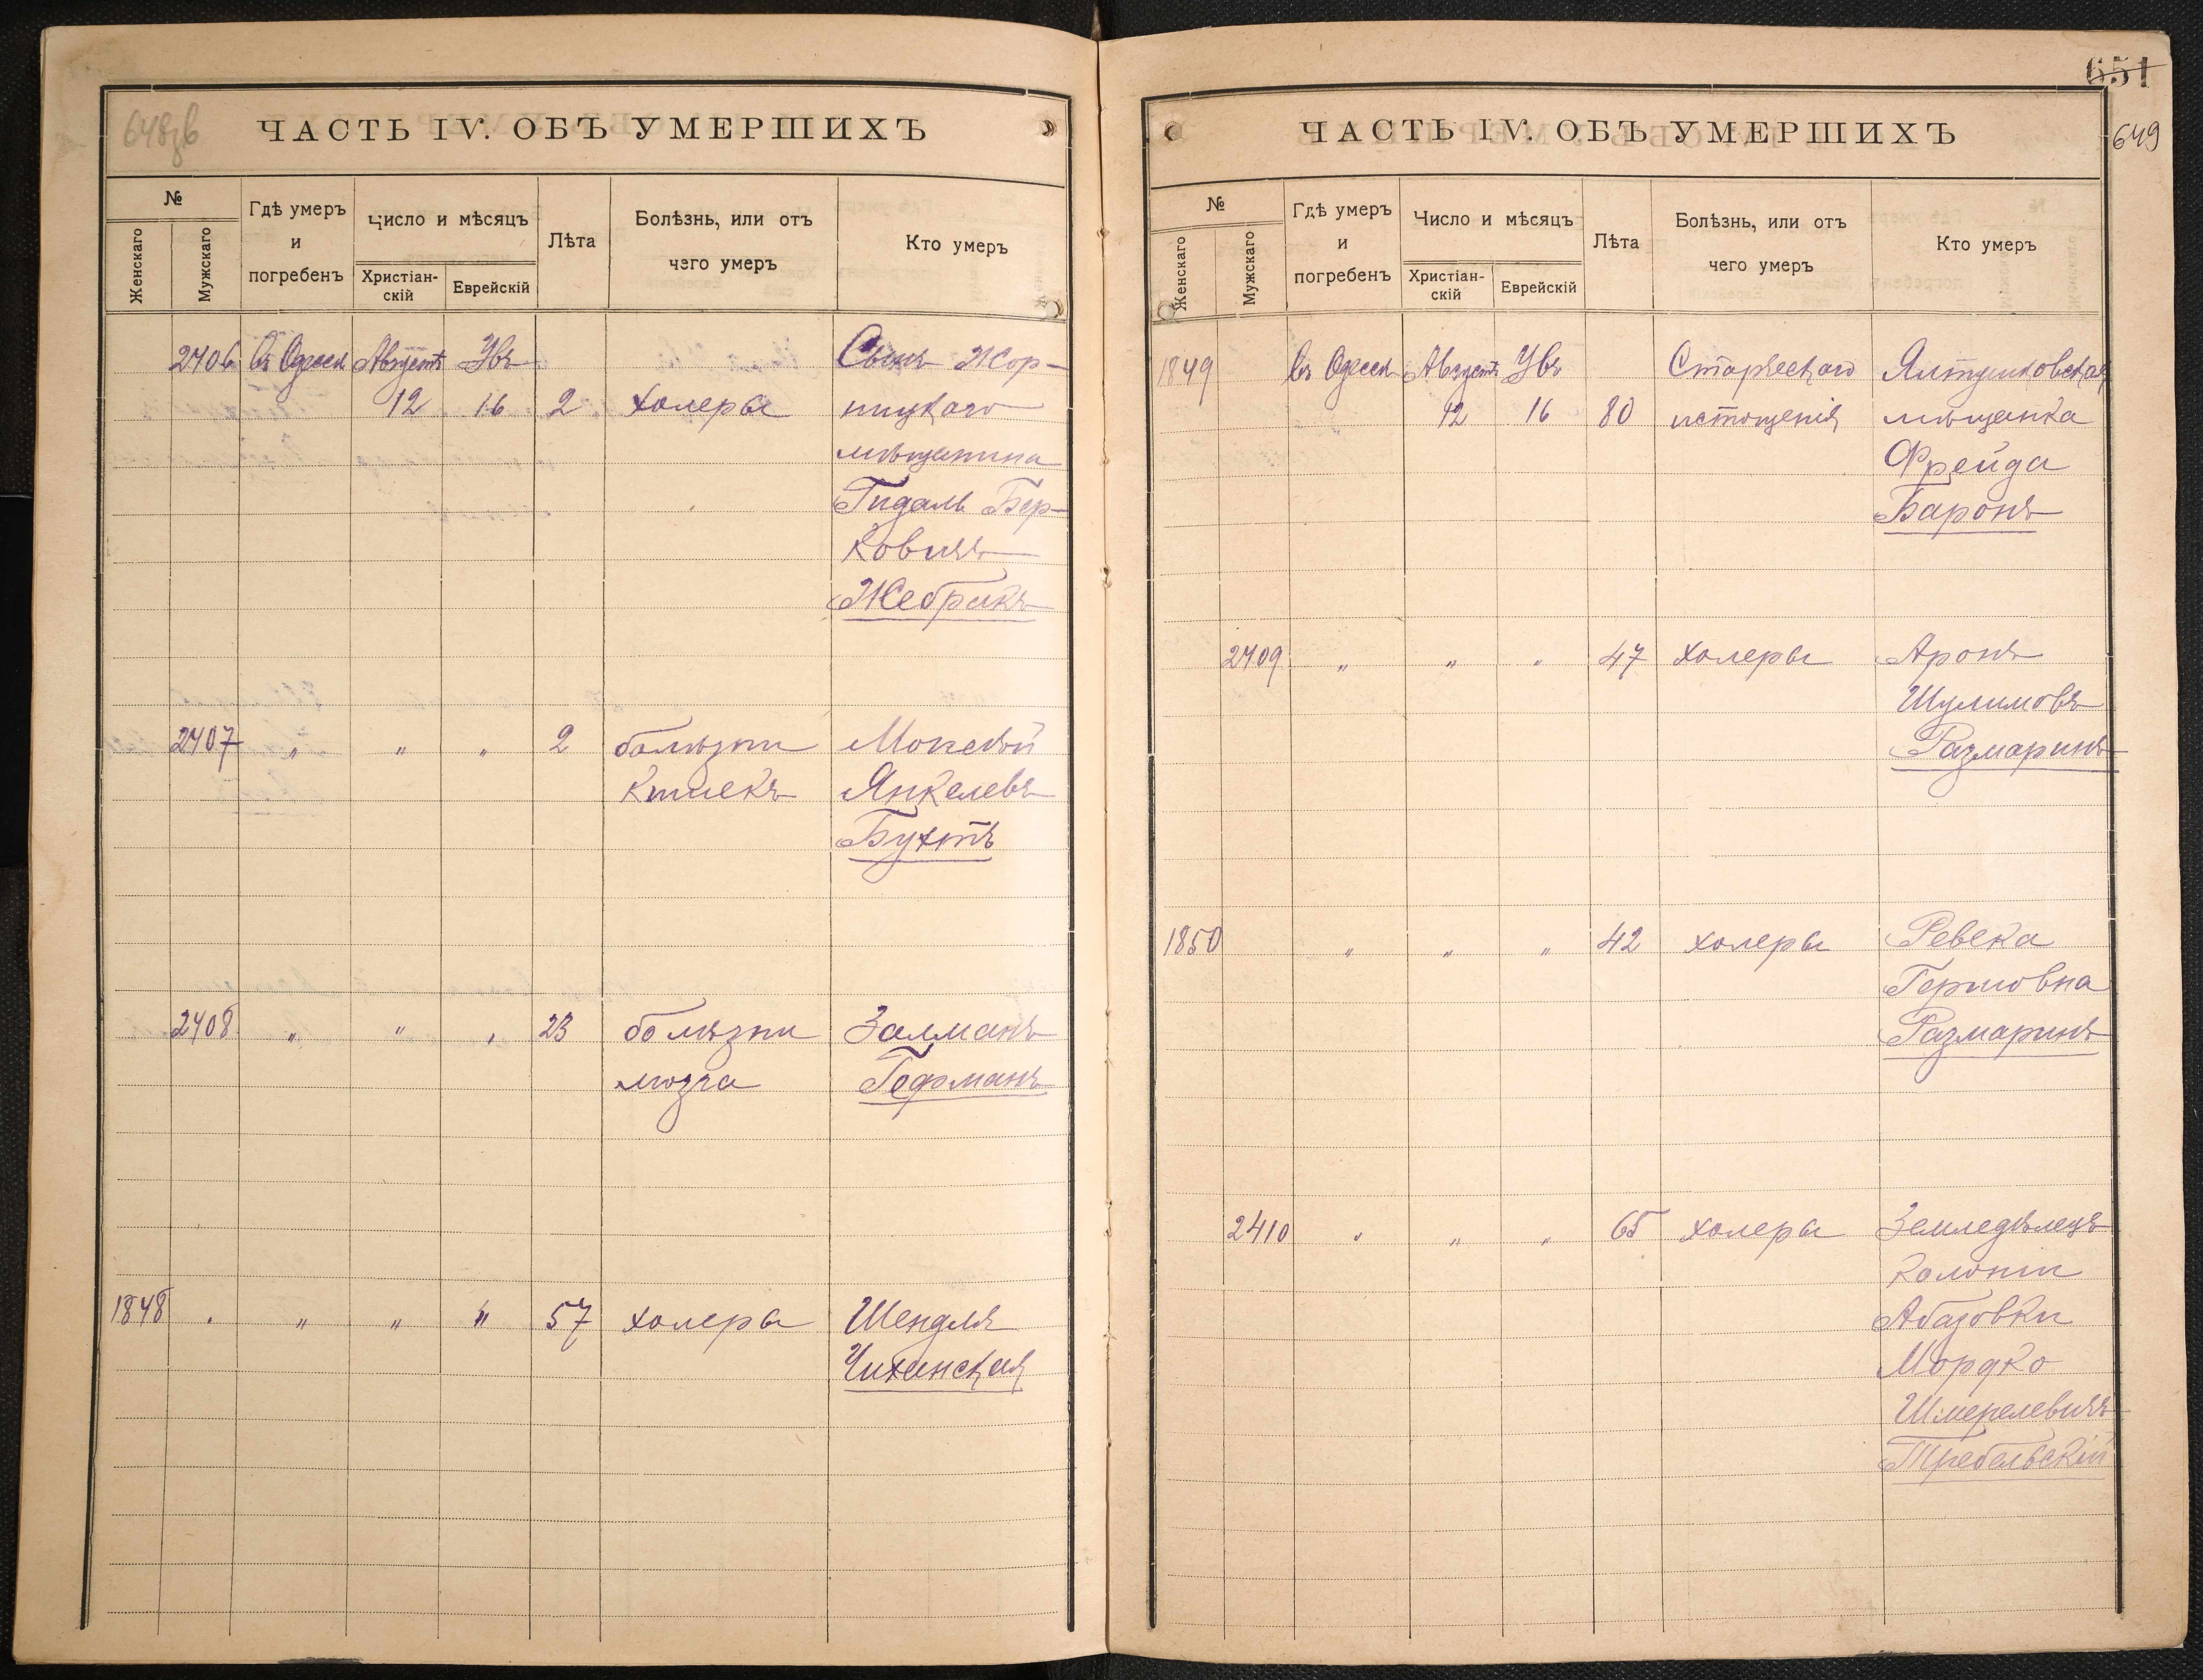 648зв
ЧАСТЬ IV. ОБЪ УМЕРШИХЪ
№
Женскаго
Мужскаго
Гдѣ умеръ
и
погребенъ
Число и мѣсяцъ
Христіан-
скій
Еврейскій
Лѣта
Болѣзнь, или отъ
чего умеръ
Кто умеръ
2406 въ Одессѣ Августъ Увъ Сынъ Жор-
12 16 2 холеры нищкаго
мѣщанина
Гидаль Бер-
ковичъ
Жебракъ
2407 " " " 2 болѣзни Моисей
кишекъ Янкелевъ
Бухтъ
2408 " " " 23 болѣзни Залманъ
мозга Гофманъ
1848 " " " " 57 холеры Шендля
Чиханская
651
649
ЧАСТЬ IV. ОБЪ УМЕРШИХЪ
№
Женскаго
Мужскаго
Гдѣ умеръ
и
погребенъ
Число и мѣсяцъ
Христіан-
скій
Еврейскій
Лѣта
Болѣзнь, или отъ
чего умеръ
Кто умеръ
1849 въ Одессѣ Августъ Увъ Старческаго Ялтушковская
12 16 80 истощенія мѣщанка
Фрейда
Баронъ
2409 " " " 47 холеры Аронъ
Шулимовъ
Размаринъ
1850 " " " 42 холеры Ревека
Гершовна
Размаринъ
2410 " " " 65 холеры Земледѣлецъ
колоніи
Абазовки
Мордко
Шмерелевичъ
Требельскій